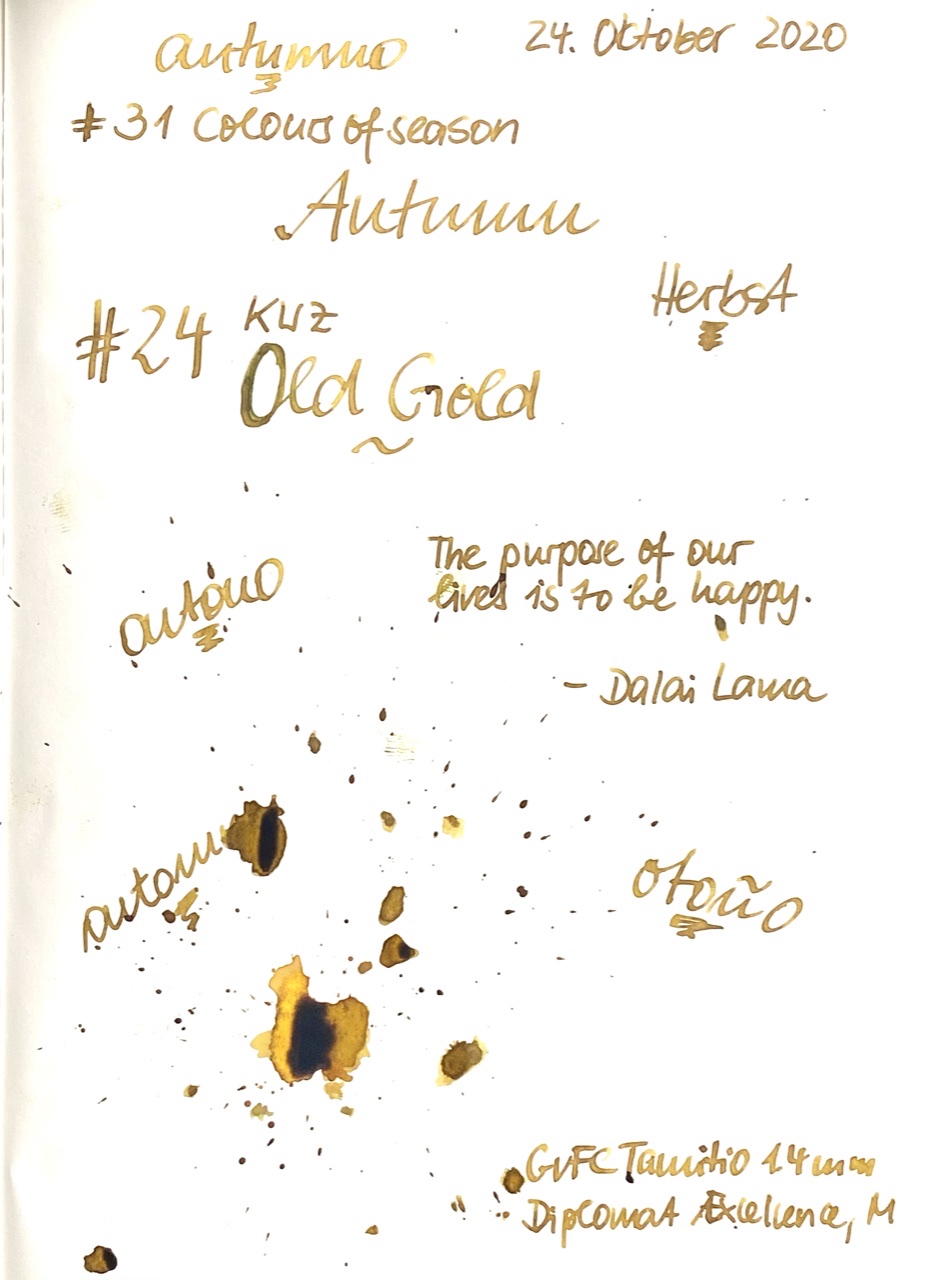 autunno
24. Oktober 2020
#31 Colours of season
Autumn
Herbst
#24 KWZ
Old Gold
outono
The purpose of our
lives is to be happy.
- Dalai Lama
otoño
GvFC Tamitio 1.4 mm
Diplomat Excellence, M